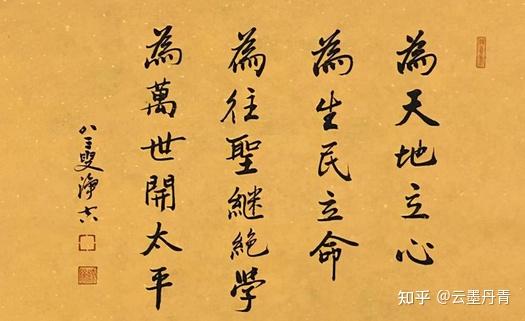 為天地立心
為生民立命
為往聖継絕学
為萬世開太平
八三叟淨空
知乎 @云墨丹青